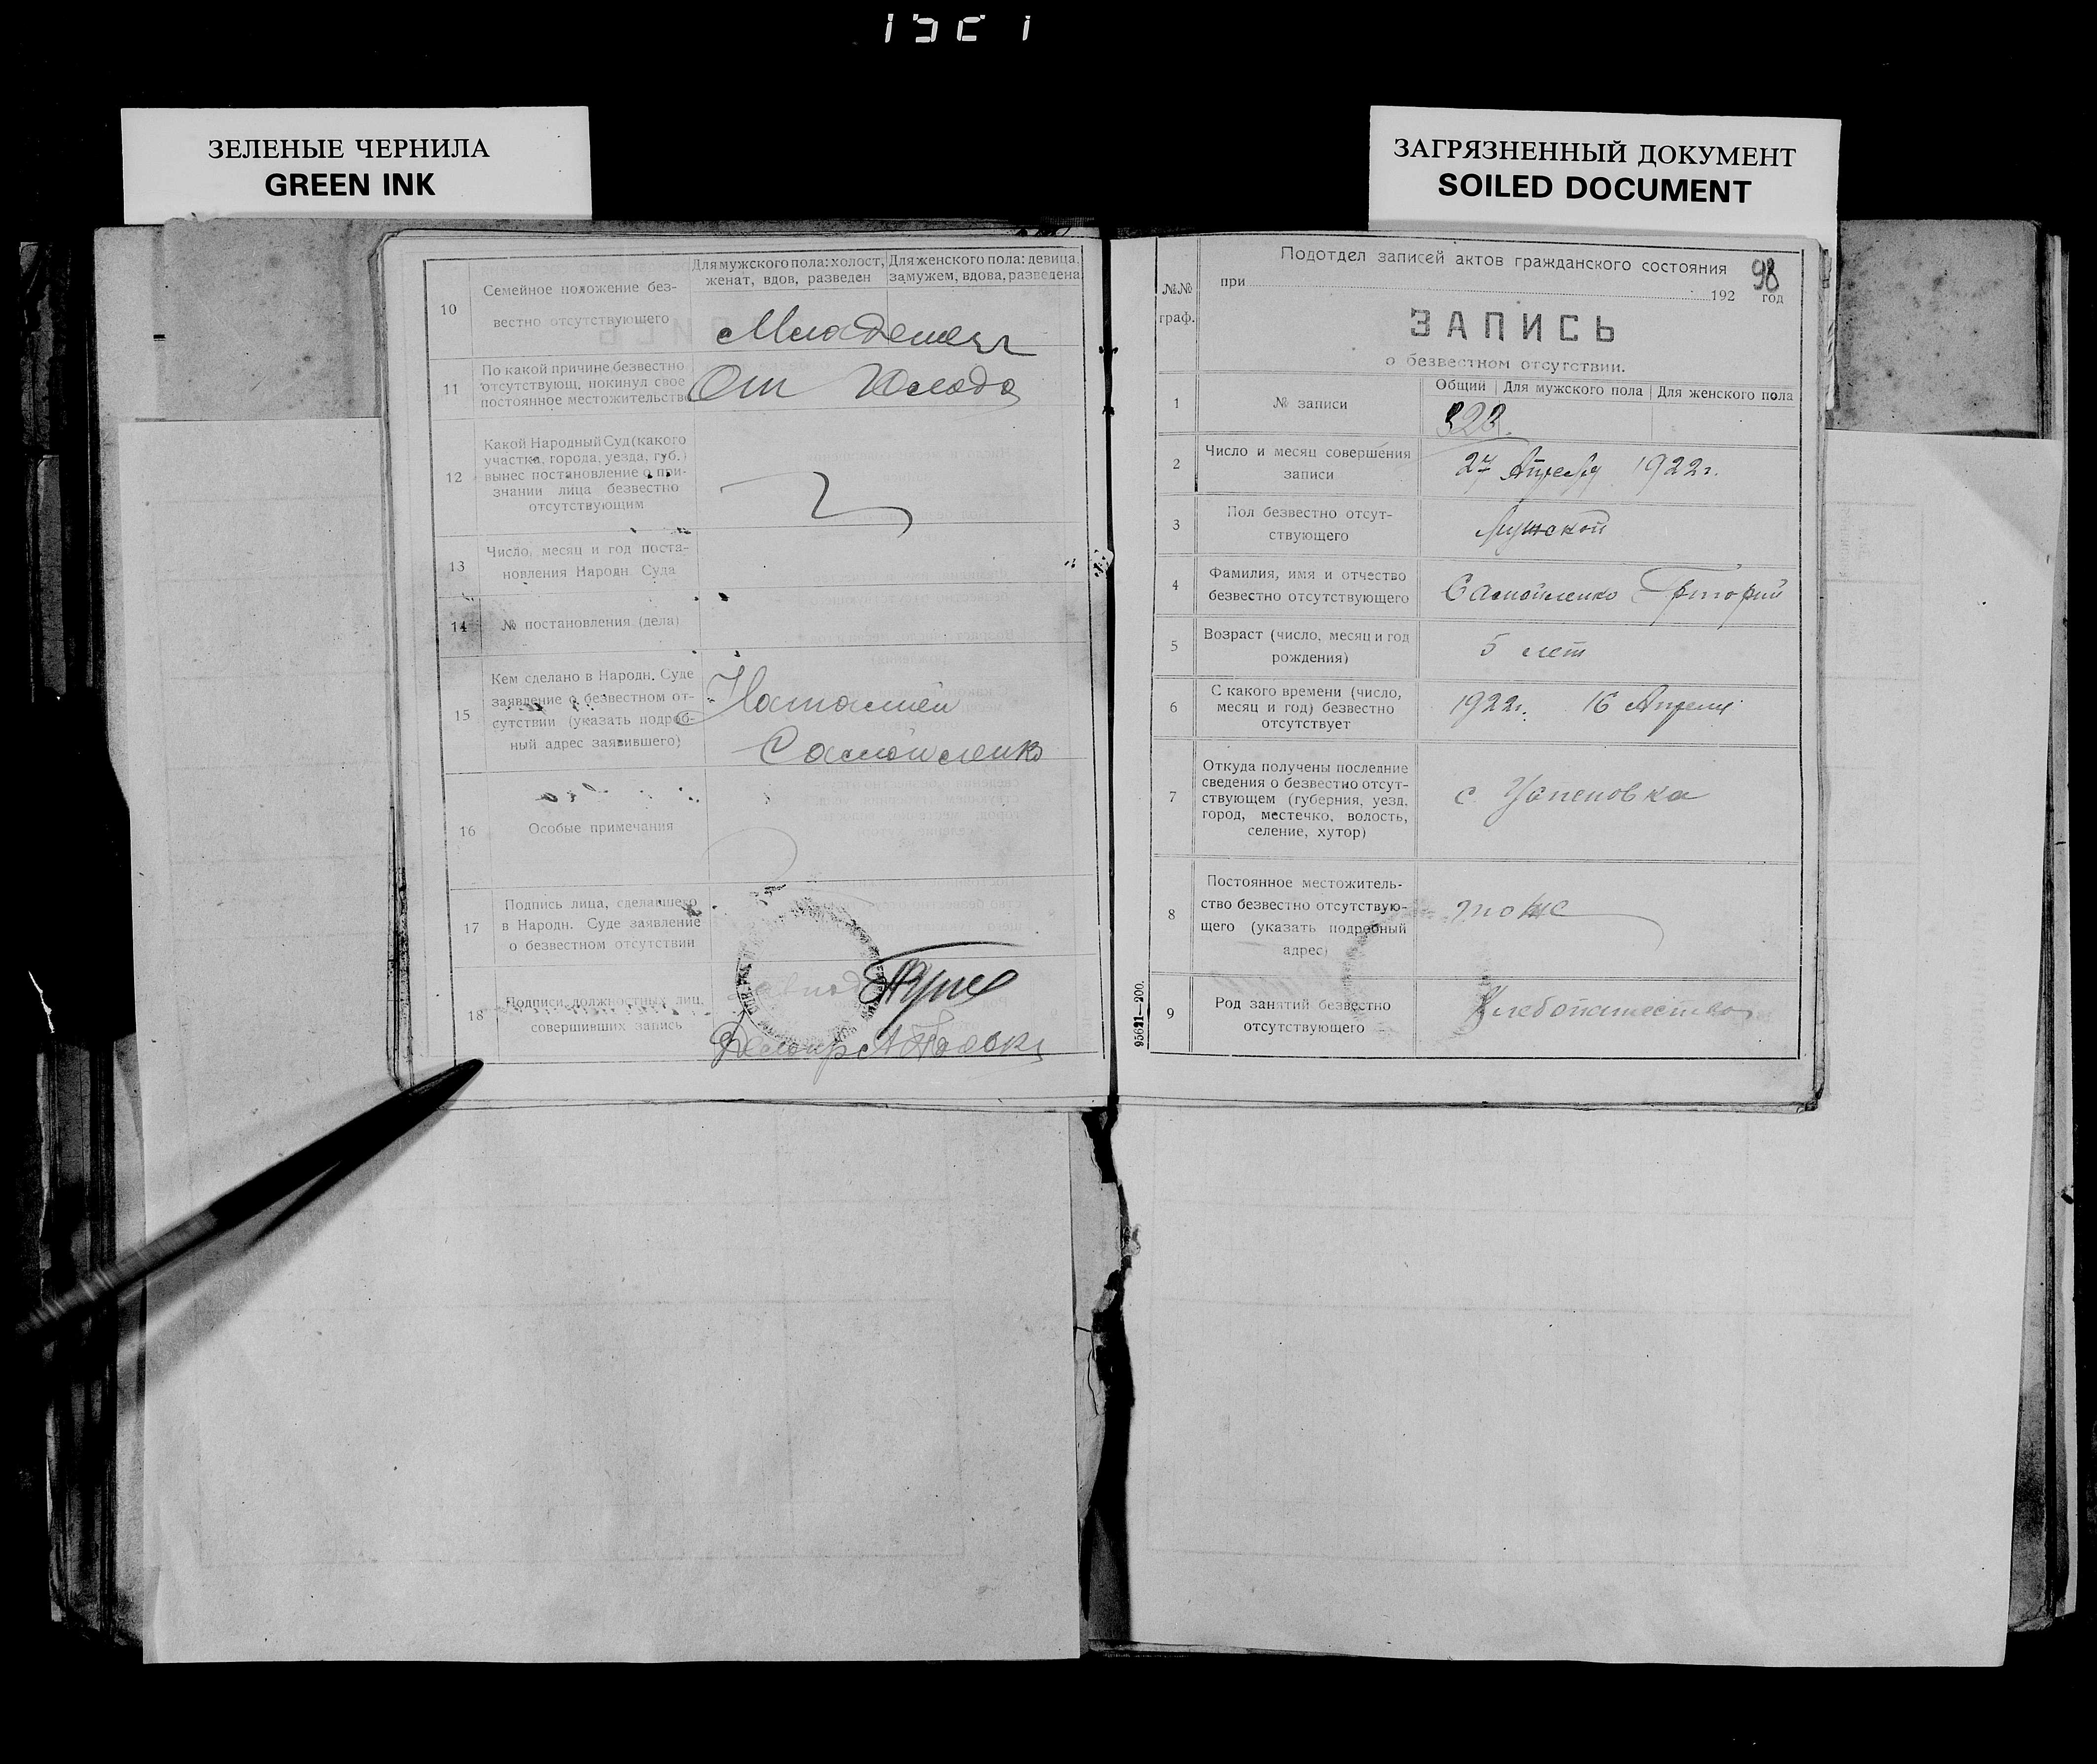 1521
ЗЕЛЕНЫЕ ЧЕРНИЛА
GREEN INK
ЗАГРЯЗНЕННЫЙ ДОКУМЕНТ
SOILED DOCUMENT
Для мужского пола: холост, женат, вдов, разведен
Для женского пола: девица, замужем, вдова, разведена
10
Семейное положение без-
вестно отсутствующего
Младенец
11
По какой причине безвестно
отсутствующ. покинул свое
постоянное местожительство
От Голода
12
Какой Народный Суд (какого
участка, города, уезда, губ.)
вынес постановление о при-
знании лица безвестно
отсутствующим
13
Число, месяц и год поста-
новления Народн. Суда
14
№ постановления (дела)
15
Кем сделано в Народн. Суде
заявление о безвестном от-
сутствии (указать подроб-
ный адрес заявившего)
Самойленко
16
Особые примечания
17
Подпись лица, сделавшего
в Народн. Суде заявление
о безвестном отсутствии
18
Подписи должностных лиц,
совершивших запись
98
Подотдел записей актов гражданского состояния
при 192 год
№№
граф.
ЗАПИСЬ
о безвестном отсутствии.
Общий
Для мужского пола
Для женского пола
1
№ записи
323.
2
Число и месяц совершения
записи
27 Апреля 1922г.
3
Пол безвестно отсут-
ствующего
Мужской
4
Фамилия, имя и отчество
безвестно отсутствующего
Самойленко Григорий
5
Возраст (число, месяц и год
рождения)
5 лет
6
С какого времени (число,
месяц и год) безвестно
отсутствует
1922г. 16 Апреля
7
Откуда получены последние
сведения о безвестно отсут-
ствующем (губерния, уезд,
город, местечко, волость,
селение, хутор)
с. Успеновка
8
Постоянное местожитель-
ство безвестно отсутствую-
щего (указать подробный
адрес)
тоже
9
Род занятий безвестно
отсутствующего
Хлебопашество
95621—200.